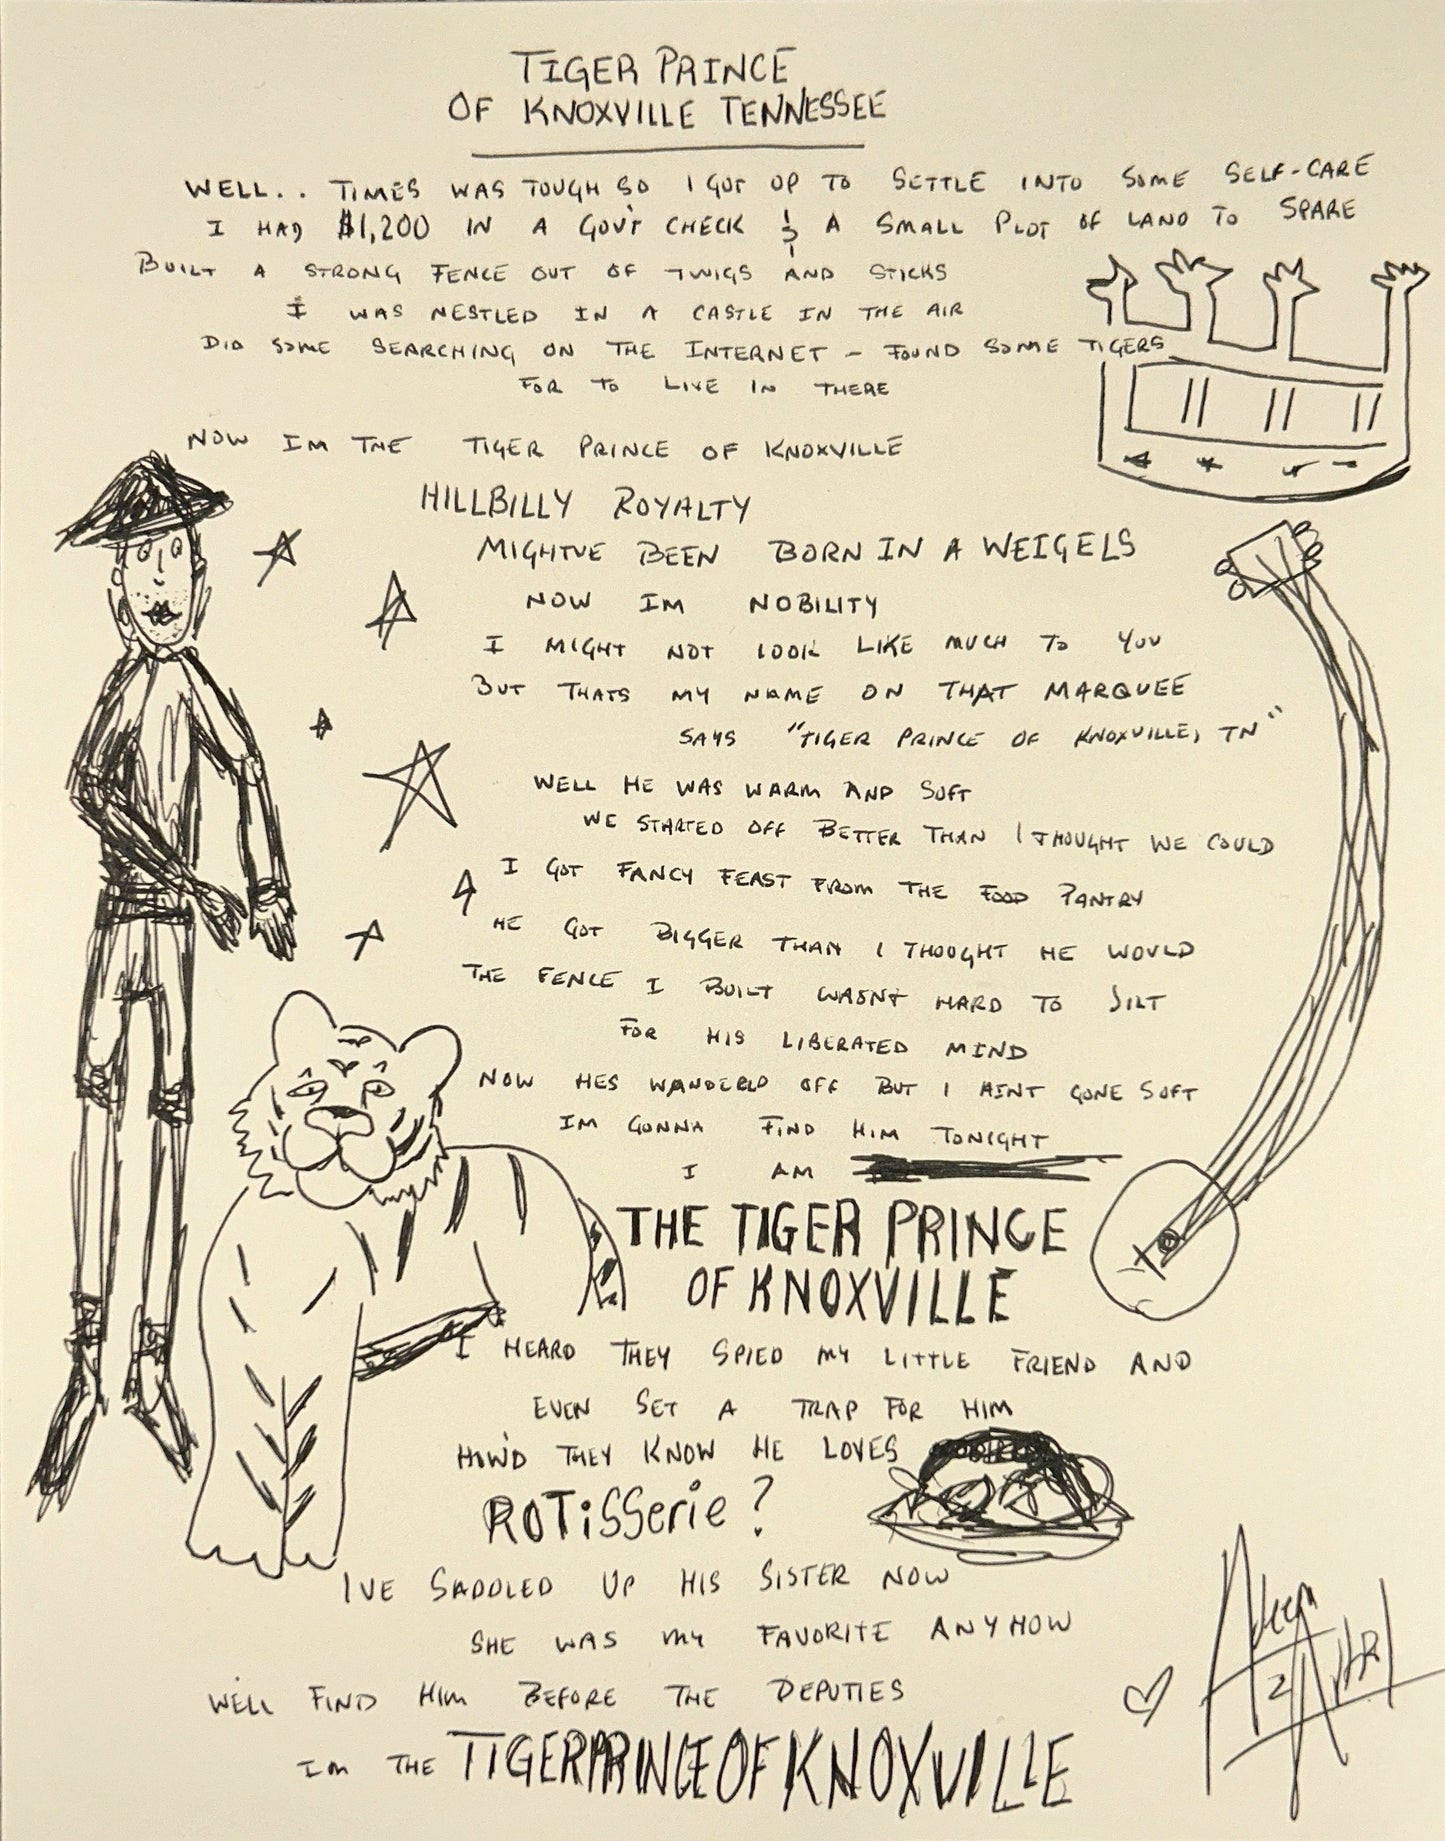 TIGER PRINCE
OF KNOXVILLE TENNESSEE
WELL.. TIMES WAS TOUGH SO I GOT UP TO SETTLE INTO SOME SELF-CARE
I HAD $1,200 IN A GOV'T CHECK & A SMALL PLOT OF LAND TO SPARE
BUILT A STRONG FENCE OUT OF TWIGS AND STICKS
I WAS NESTLED IN A CASTLE IN THE AIR
DID SOME SEARCHING ON THE INTERNET - FOUND SOME TIGERS
FOR TO LIVE IN THERE
NOW IM THE TIGER PRINCE OF KNOXVILLE
HILLBILLY ROYALTY
MIGHTVE BEEN BORN IN A WEIGELS
NOW IM NOBILITY
I MIGHT NOT LOOK LIKE MUCH TO YOU
BUT THATS MY NAME ON THAT MARQUEE
SAYS "TIGER PRINCE OF KNOXVILLE, TN"
WELL HE WAS WARM AND SOFT
WE STARTED OFF BETTER THAN I THOUGHT WE COULD
I GOT FANCY FEAST FROM THE FOOD PANTRY
HE GOT BIGGER THAN I THOUGHT HE WOULD
THE FENCE I BUILT WASNT HARD TO JILT
FOR HIS LIBERATED MIND
NOW HES WANDERED OFF BUT I AINT GONE SOFT
IM GONNA FIND HIM TONIGHT
I AM
THE TIGER PRINCE
OF KNOXVILLE
I HEARD THEY SPIED MY LITTLE FRIEND AND
EVEN SET A TRAP FOR HIM
HOW'D THEY KNOW HE LOVES
ROTiSSerie?
IVE SADDLED UP HIS SISTER NOW
SHE WAS MY FAVORITE ANYHOW
WE'LL FIND HIM BEFORE THE DEPUTIES
IM THE TIGERPRINCEOFKNOXVILLE